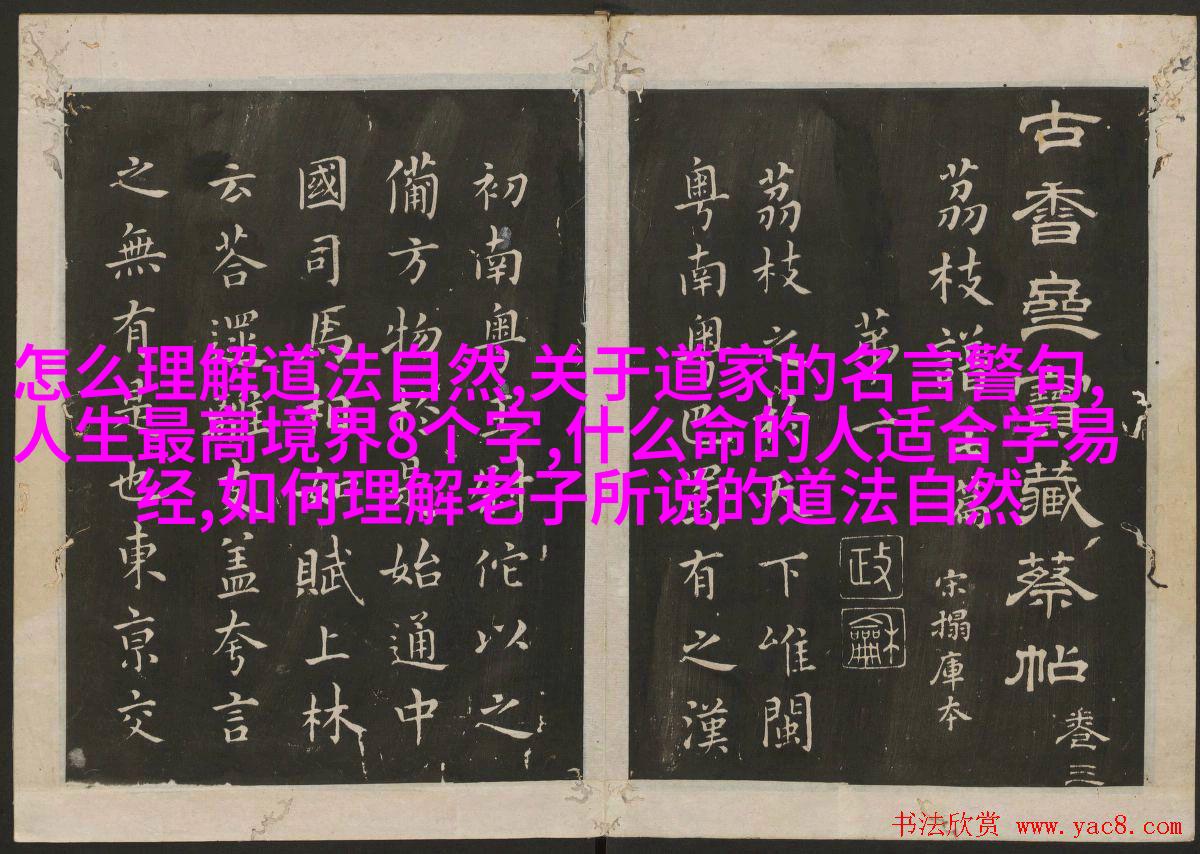 古香齋寶藏蔡帖
卷三
荔枝譜七篇
宋搨庫本
第一
政龢
荔枝之於天下唯閩
粤南粵巴蜀有之漢
初南粵王尉佗以之
備方物於是始通中
國司馬相如賦上林
云荅遝離支盖夸言
之無有是也東京交
怎么理解道法自然,关于道家的名言警句,
人生最高境界8个字,什么命的人适合学易
经,如何理解老子所说的道法自然
书法欣赏 www.yac8.com